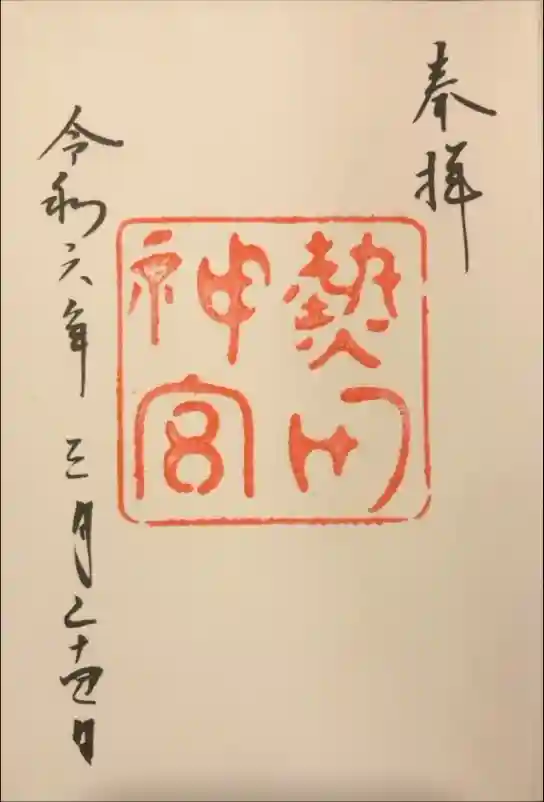 奉拝
熱田
神宮
令和六年三月二十四日